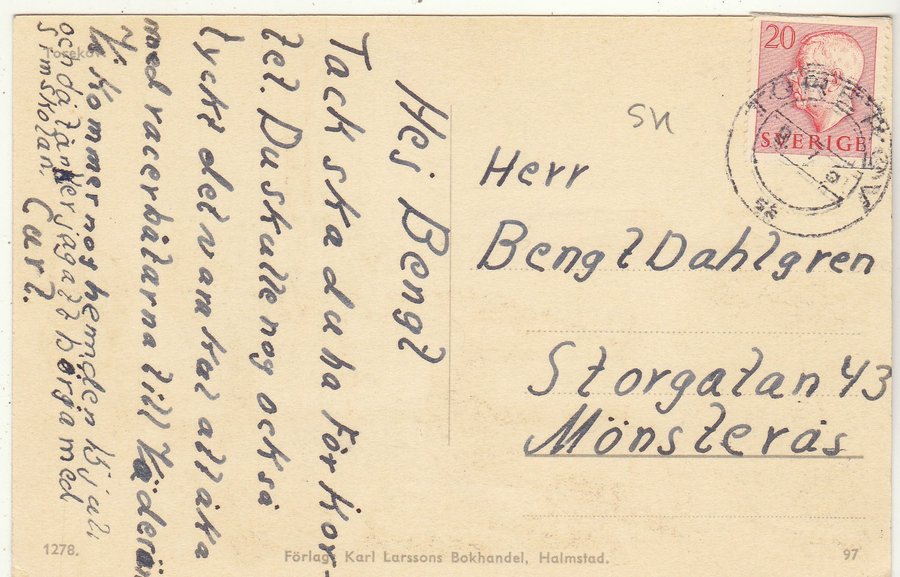 Hej Bengt
Tack ska du ha för kor-
tet. Du skulle nog också
tyckt det var skoj att åka
med racerbåtarna till
Vi kommer nog hem den 15 juli
och då tänker jag att börja med
simskolan.
Carl.
Torekov
20
SVERIGE
TOREKOV
SN
Herr
Bengt Dahlgren
Storgatan 43
Mönsterås
1278.
Förlag: Karl Larssons Bokhandel, Halmstad.
97